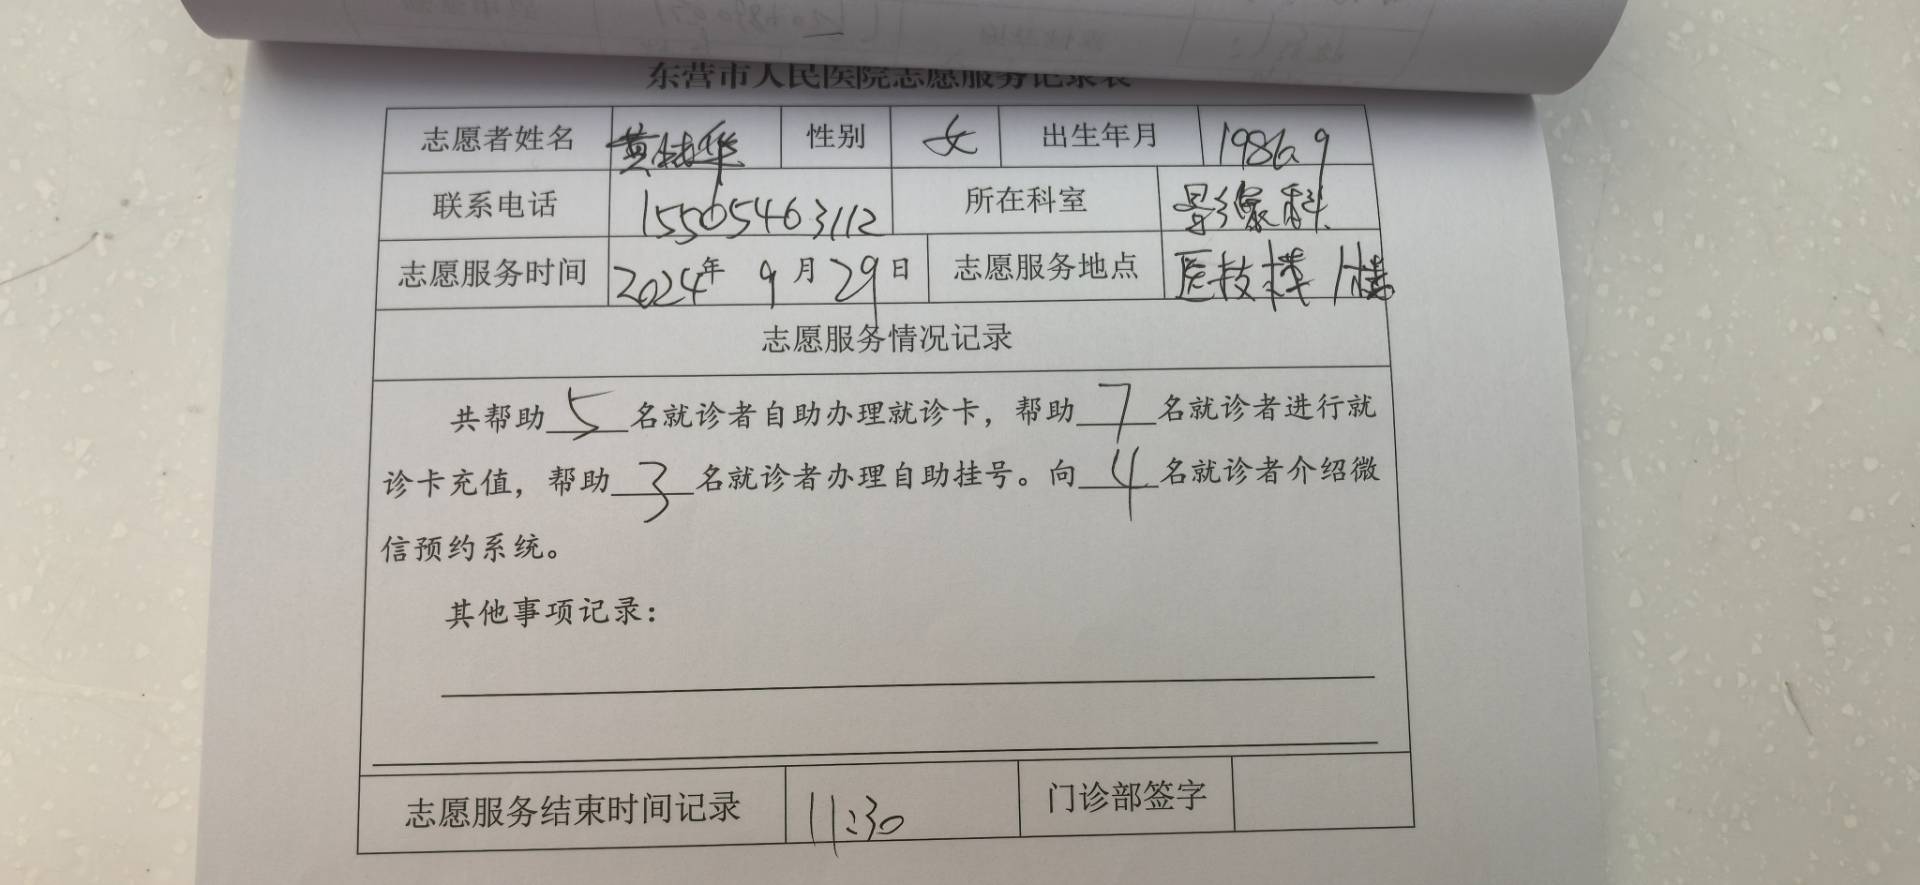 东营市人民医院志愿服务记录表
志愿者姓名 黄 华 性别 女 出生年月 1986.9
联系电话 15505463112 所在科室 影像科
志愿服务时间 2024年 9月29日 志愿服务地点 医技楼 1楼
志愿服务情况记录
共帮助5名就诊者自助办理就诊卡，帮助7名就诊者进行就
诊卡充值，帮助3名就诊者办理自助挂号。向4名就诊者介绍微
信预约系统。
其他事项记录：
志愿服务结束时间记录 11:30 门诊部签字